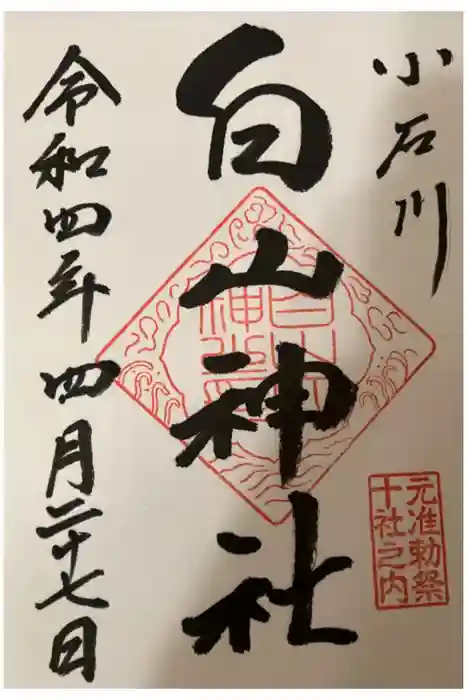 小石川
白山神社
令和四年四月二十七日
白山神社
元准勅祭
十社之内